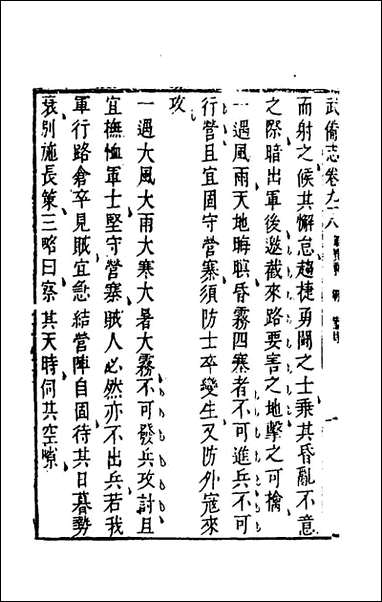 武備志卷九十八
而射之候其懈怠趫捷勇鬪之士乘其昏亂不意
之際暗出軍後邀截來路要害之地擊之可擒
一遇風雨天地晦暝昏霧四塞者不可進兵不可
行營且宜固守營寨須防士卒變生又防外寇來
攻
一遇大風大雨大寒大暑大霧不可發兵攻討且
宜撫恤軍士堅守營寨賊人必然亦不出兵若我
軍行路倉卒見賊宜急結營陣自固待其日暮勢
衰別施長策三略曰察其天時伺其空隙